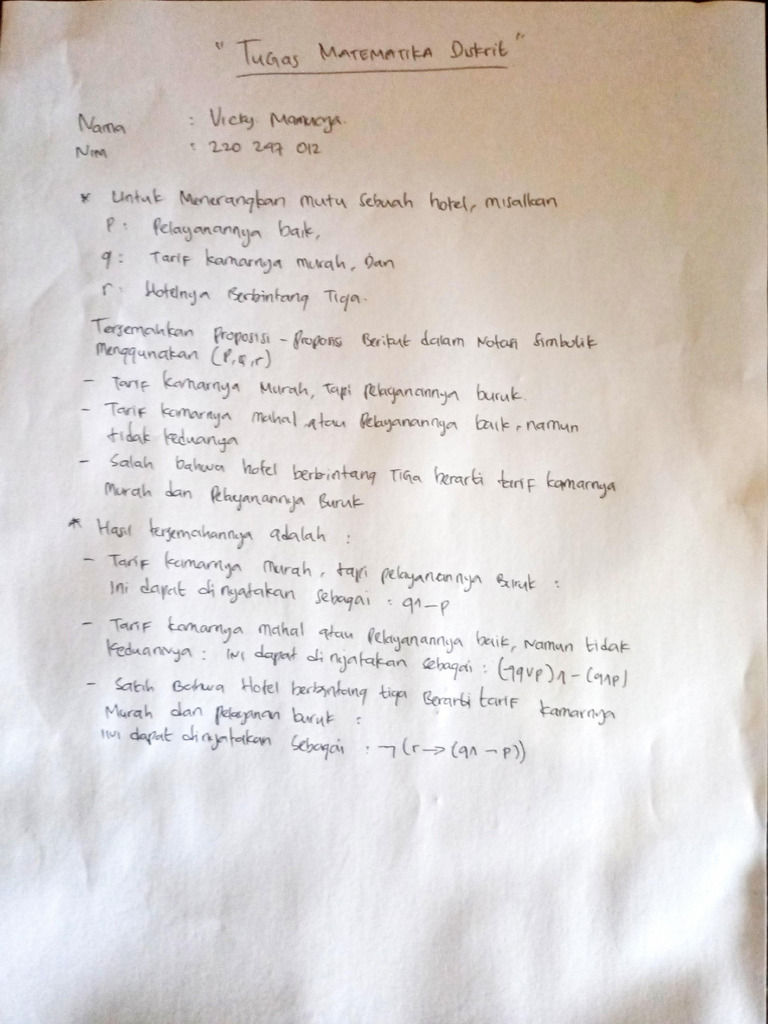 " TUGAS MATEMATIKA Diskrit "
Nama : Vicky
Nim : 220 247 012
* Untuk Menerangkan mutu sebuah hotel, misalkan
P : Pelayanannya baik,
q : Tarif kamarnya murah, Dan
r : Hotelnya Berbintang Tiga.
Terjemahkan Proposisi - Proposisi Berikut dalam Notasi Simbolik
Menggunakan (P,q,r)
- Tarif kamarnya Murah, Tapi pelayanannya buruk.
- Tarif kamarnya mahal atau Pelayanannya baik, namun
tidak keduanya
- Salah bahwa hotel berbintang TIGA berarti tarif kamarnya
Murah dan Pelayanannya Buruk
* Hasil terjemahannya adalah :
- Tarif kamarnya murah, tapi pelayanannya Buruk :
Ini dapat dinyatakan sebagai : q∧-p
- Tarif kamarnya mahal atau Pelayanannya baik, Namun tidak
Keduannya : INI dapat dinyatakan sebagai : (¬q∨p)∧-(q∧p)
- Salah Bahwa Hotel berbintang tiga Berarti tarif kamarnya
Murah dan pelayanan buruk :
INI dapat dinyatakan sebagai : ¬(r→(q∧¬p))